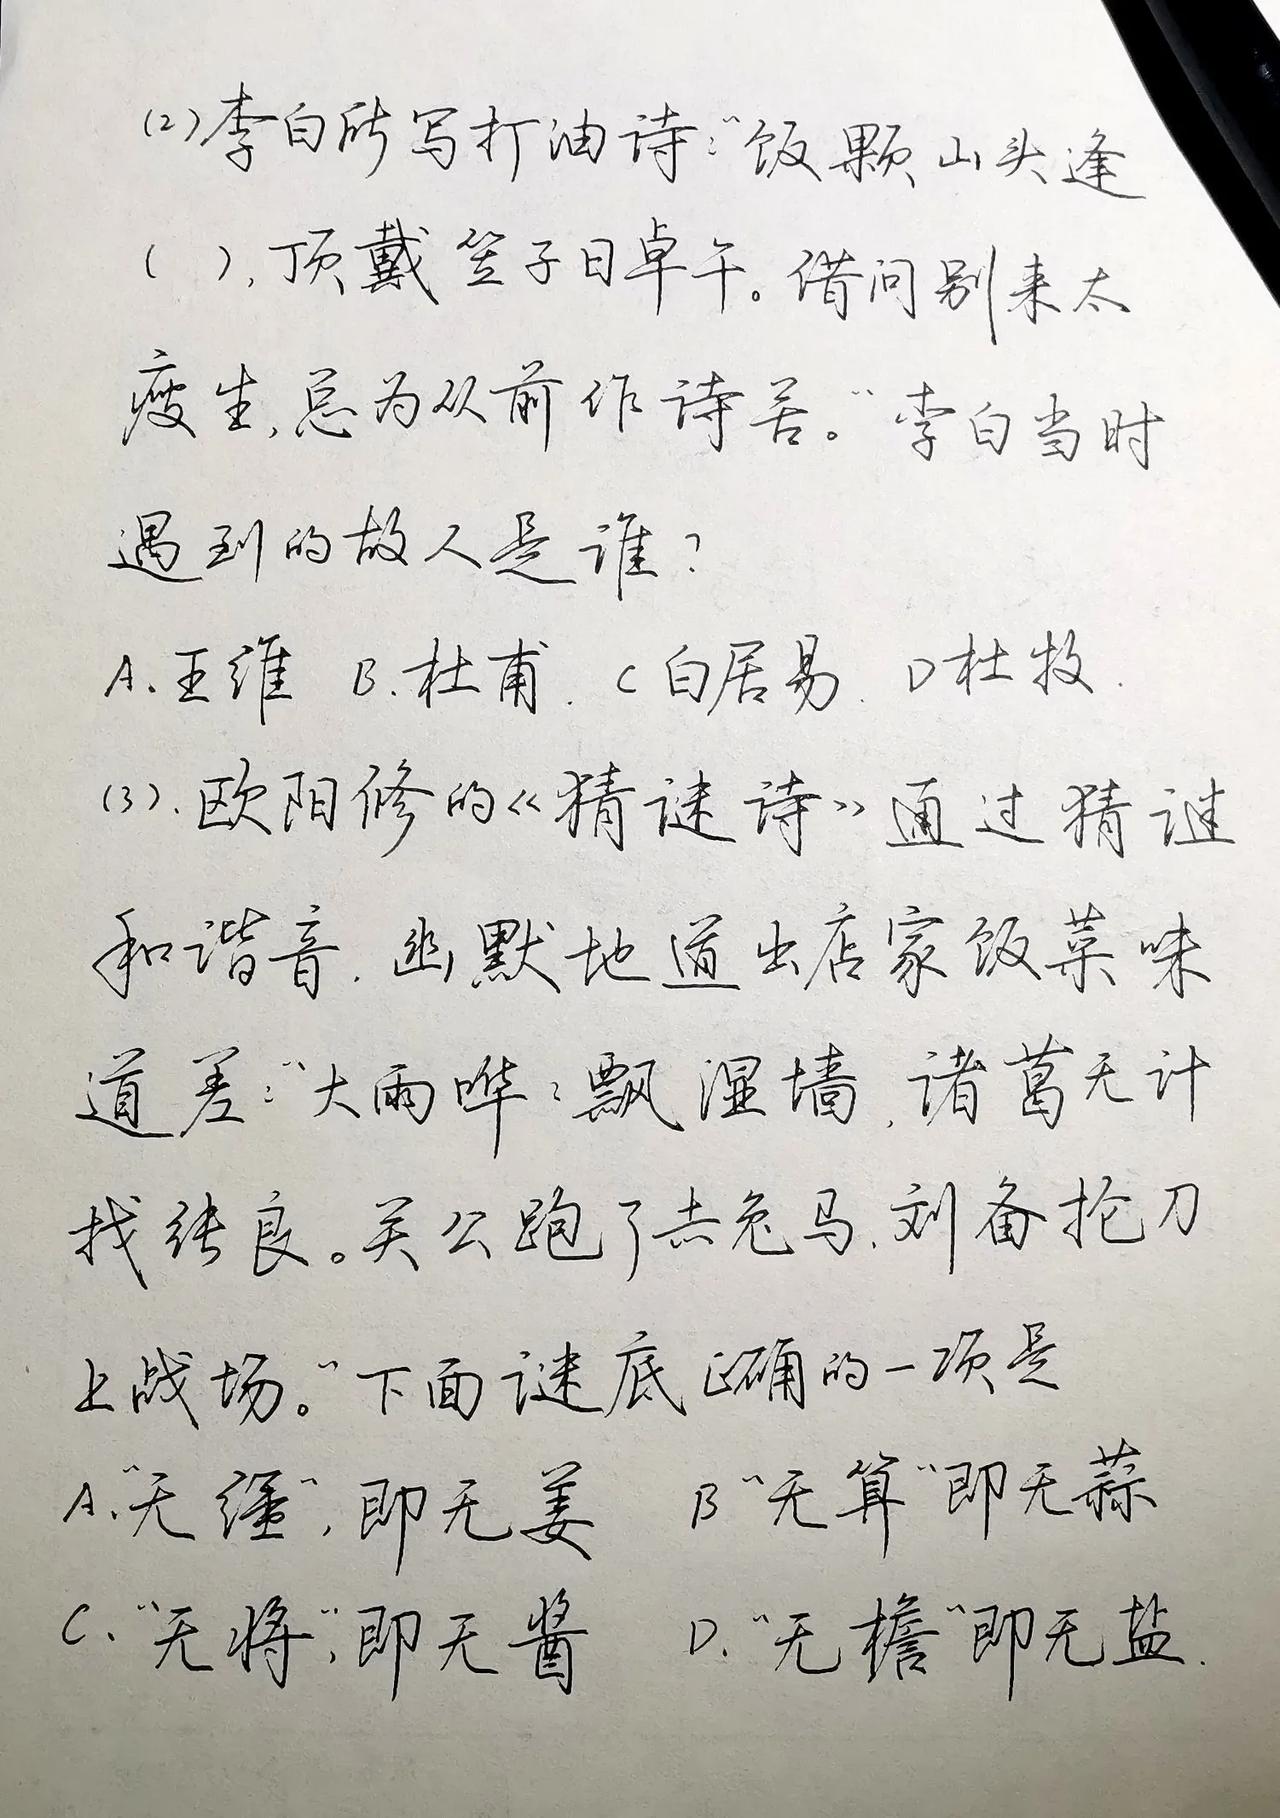 (2)李白所写打油诗:“饭颗山头逢
( ),顶戴笠子日卓午。借问别来太
瘦生,总为从前作诗苦。”李白当时
遇到的故人是谁?
A.王维 B.杜甫. C白居易. D杜牧.
(3).欧阳修的《猜谜诗》通过猜谜
和谐音,幽默地道出店家饭菜味
道差:“大雨哗々飘湿墙,诸葛无计
找张良。关公跑了赤兔马,刘备抡刀
上战场。”下面谜底正确的一项是
A.“无缰”,即无姜 B“无算”即无蒜
C.“无将”,即无酱 D.“无檐”即无盐.